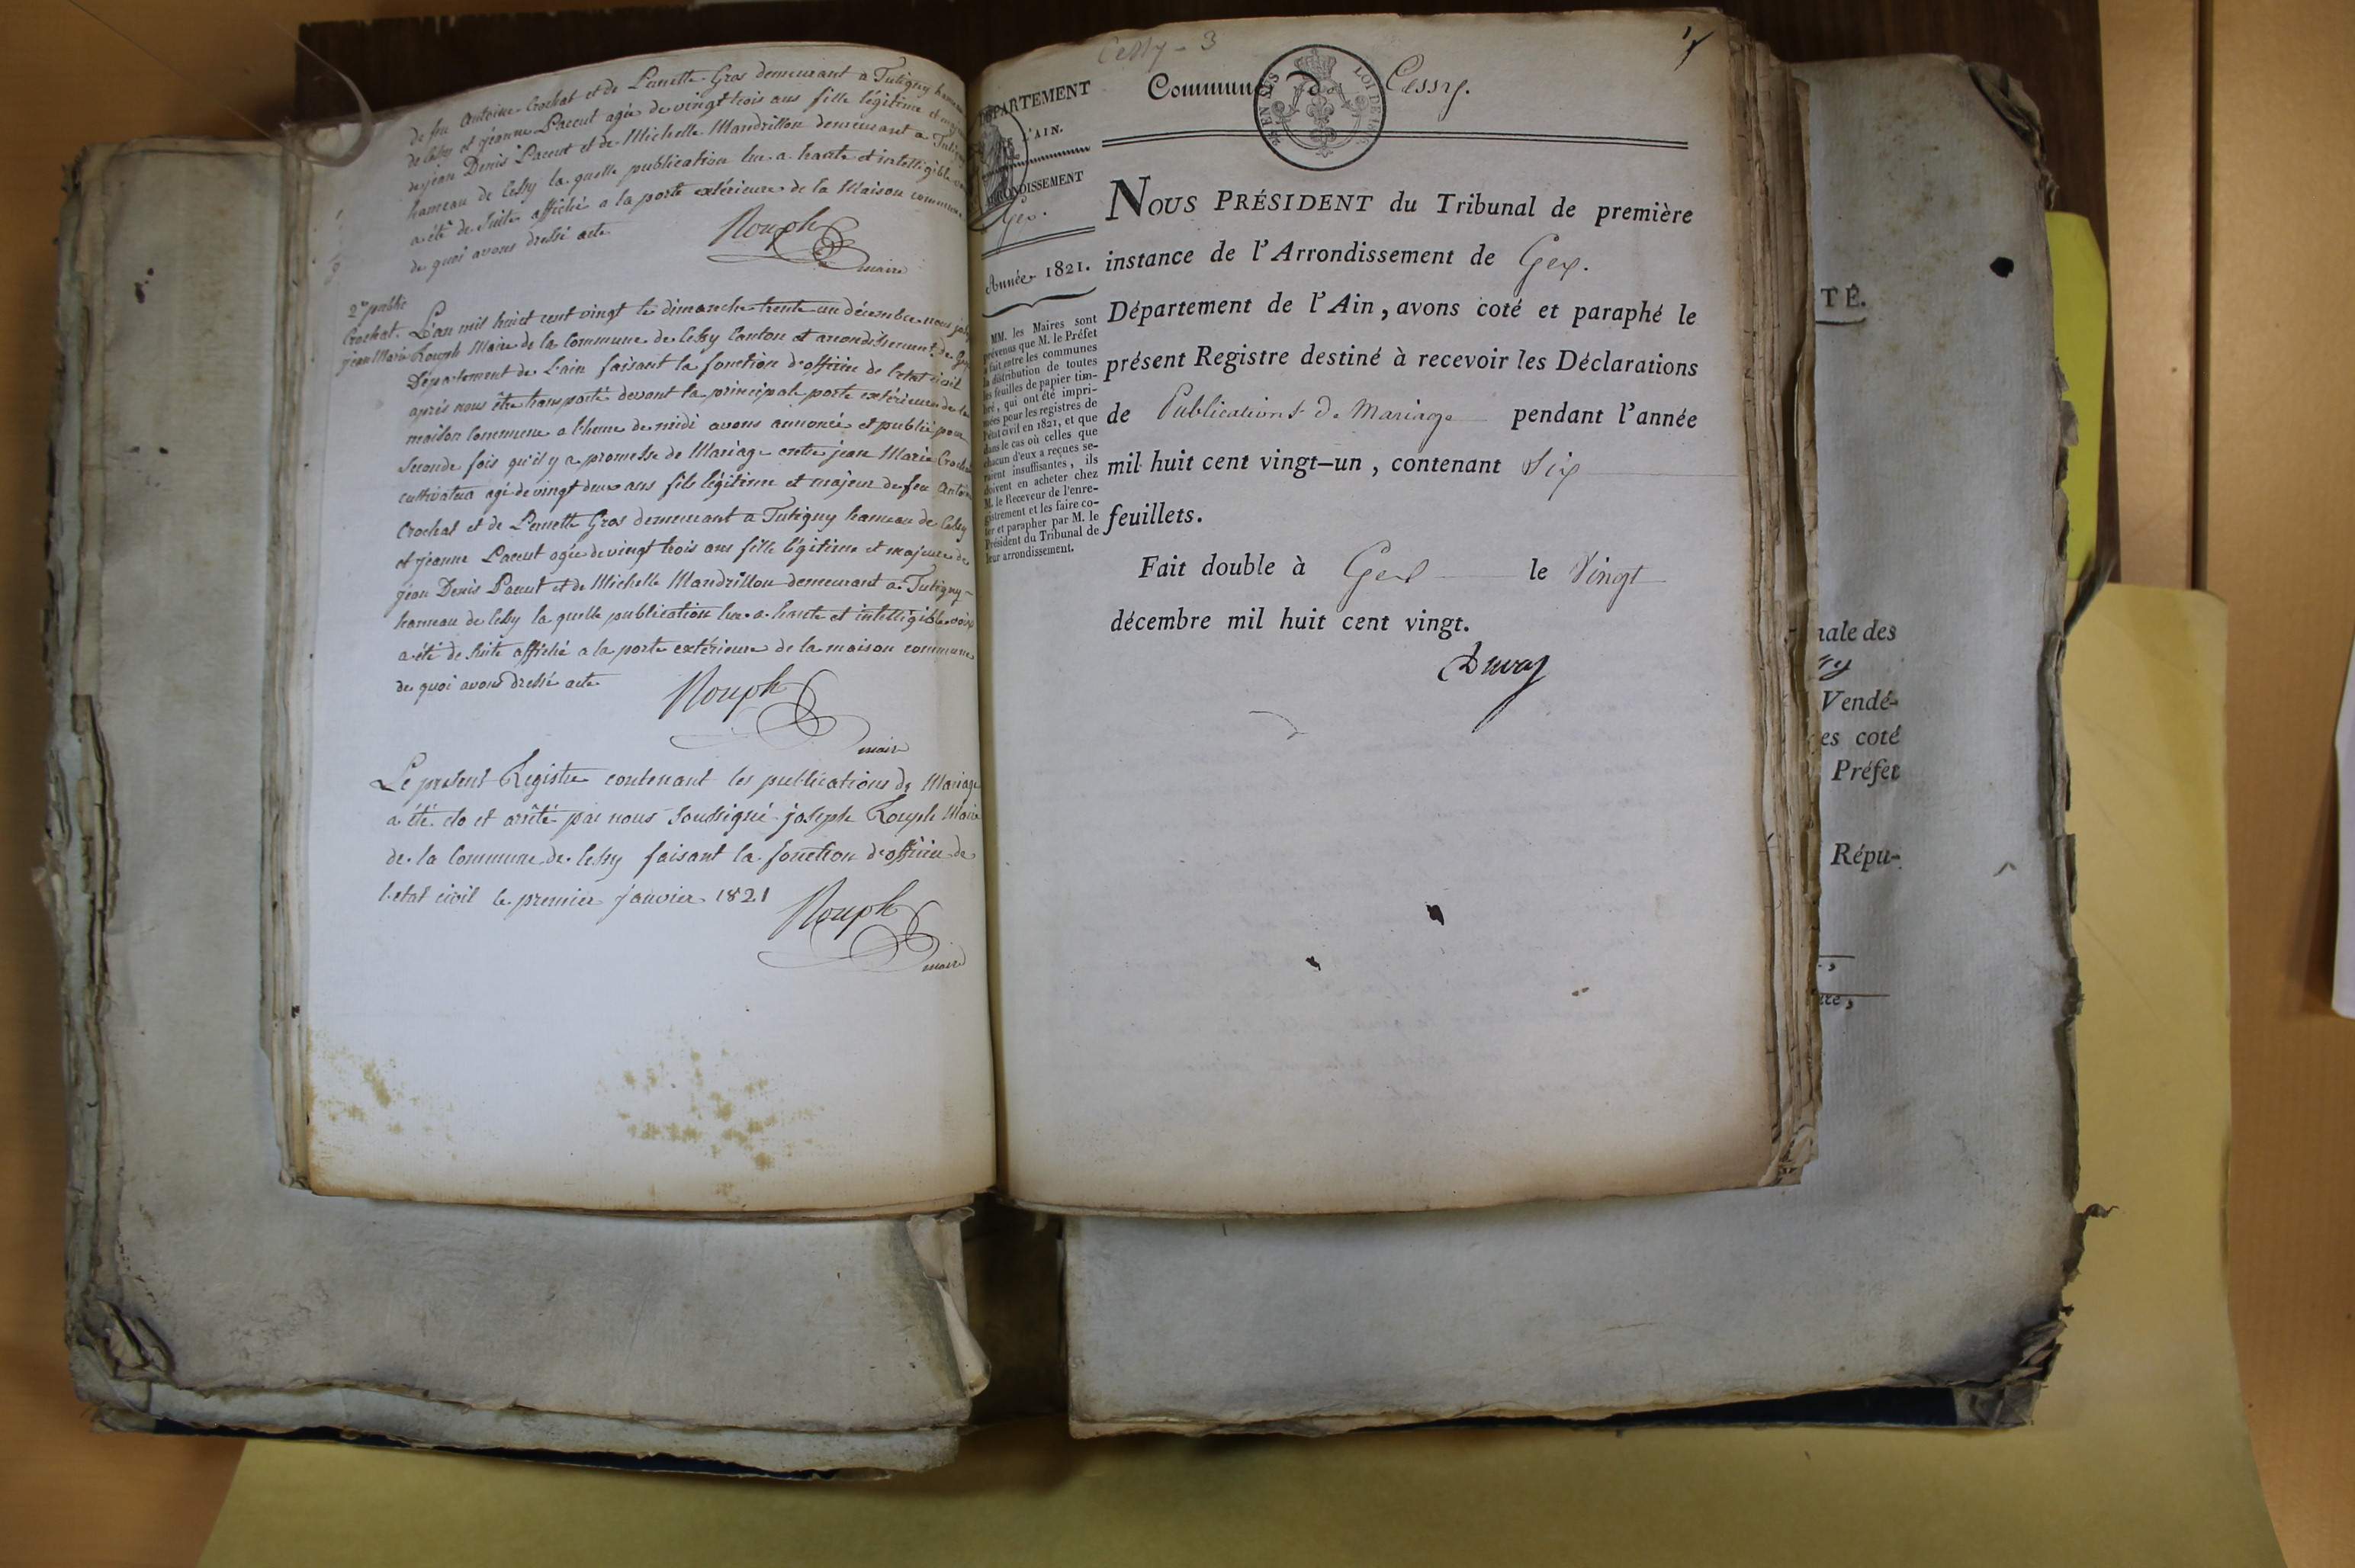 de feu Antoine Crochat et de Pernette Gros demeurant a Tutigny hameau
de Cessy et jeanne Paccut agée de vingt trois ans fille légitime et
de jean Denis Paccut et de Michelle Mandrillon demeurant a
hameau de Cessy la quelle publication lue a haute et intelligible
a été de suite affiché a la porte extérieure de la Maison commune
de quoi avons dressé acte
Rouph
maire
2me public
Crochat
jean Marie
L'an mil huit cent vingt le dimanche trente un décembre nous
Rouph Maire de la Commune de Cessy Canton et arrondissement de Gex
Département de l'ain faisant la fonction d'officier de l'etat civil
après nous être transporté devant la principale porte extérieure de la
maison Commune a l'heure de midi avons annoncé et publié pour
seconde fois qu'il y a promesse de Mariage entre jean Marie Crochat
cultivateur agé de vingt deux ans fils légitime et majeur de feu Antoine
Crochat et de Pernette Gros demeurant a Tutigny hameau de Cessy
et jeanne Paccut agée de vingt trois ans fille légitime et majeure de
jean Denis Paccut et de Michelle Mandrillon demeurant a Tutigny
hameau de Cessy la quelle publication lue a haute et intelligible voix
a été de suite affiché a la porte extérieure de la maison commune
de quoi avons dressé acte
Rouph
maire
Le present Registre contenant les publications de Mariage
a été clo et arrêté par nous soussigné joseph Rouph Maire
de la Commune de Cessy faisant la fonction d'officier de
l'etat civil le premier janvier 1821
Rouph
maire
Cessy - 3
DÉPARTEMENT
DE L'AIN.
ARRONDISSEMENT
Gex.
Année 1821.
MM. les Maires sont
prévenus que M. le Préfet
a fait entre les communes
la distribution de toutes
les feuilles de papier tim-
bré, qui ont été impri-
mées pour les registres de
l'état civil en 1821, et que
dans le cas où celles que
chacun d'eux a reçues se-
roient insuffisantes, ils
doivent en acheter chez
M. le Receveur de l'enre-
gistrement et les faire co-
ter et parapher par M. le
Président du Tribunal de
leur arrondissement.
Commune de Cessy.
LOI DE
NOUS PRÉSIDENT du Tribunal de première
instance de l'Arrondissement de Gex.
Département de l'Ain, avons coté et paraphé le
présent Registre destiné à recevoir les Déclarations
de Publications de Mariage pendant l'année
mil huit cent vingt-un, contenant Six
feuillets.
Fait double à Gex le Vingt
décembre mil huit cent vingt.
TÉ.
nale des
Vendé-
es coté
Préfet
Répu-